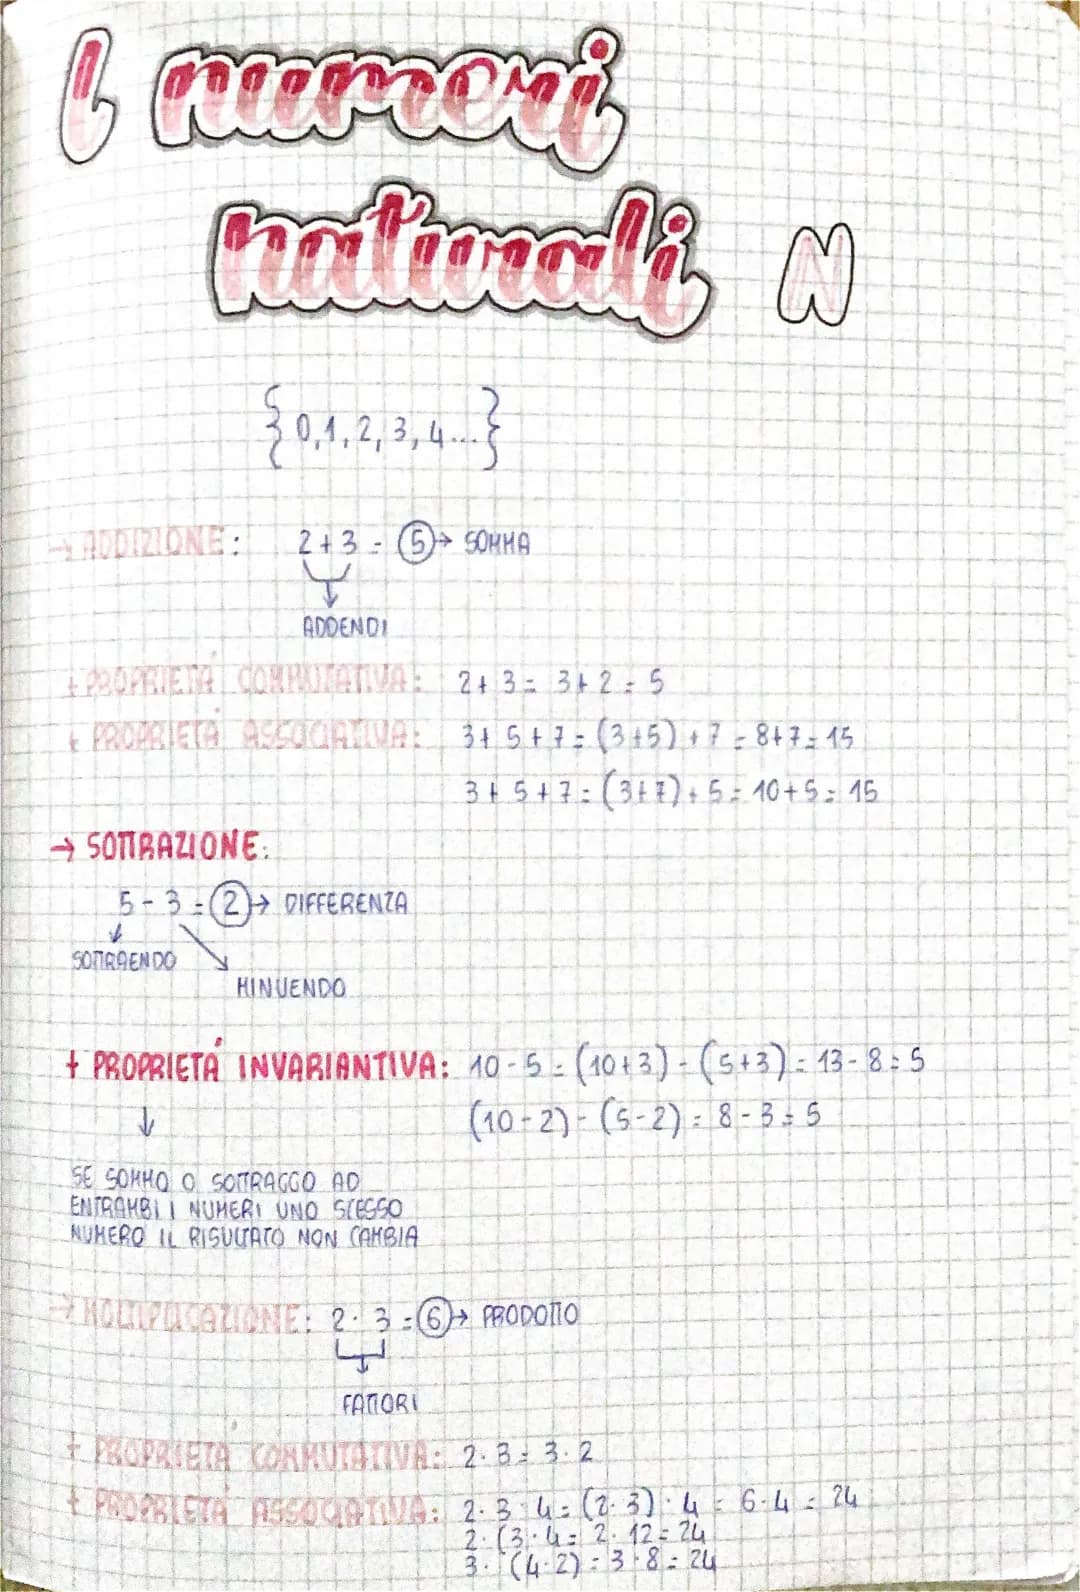 I numeri
naturali N
{0,1,2,3,4...}
→ ADDIZIONE: 2+3 = 5 → SOMMA
ADDENDI
+ PROPRIETÁ COMMUTATIVA: 2+3 = 3+2 = 5
+ PROPRIETÁ ASSOCIATIVA: 3+5+7 = (3+5)+7 = 8+7 = 15
3+5+7 = (3+7)+5 = 10+5 = 15
→ SOTTRAZIONE:
5-3 = 2 → DIFFERENZA
SOTTRAENDO
MINUENDO
+ PROPRIETÁ INVARIANTIVA: 10-5 = (10+3)-(5+3) = 13-8 = 5
↓ (10-2)-(5-2) = 8-3 = 5
SE SOMMO O SOTTRAGGO AD
ENTRAMBI I NUMERI UNO STESSO
NUMERO IL RISULTATO NON CAMBIA
→ MOLTIPLICAZIONE: 2·3 = 6 → PRODOTTO
FATTORI
+ PROPRIETÁ COMMUTATIVA: 2·3 = 3·2
+ PROPRIETÁ ASSOCIATIVA: 2·3·4 = (2·3)·4 = 6·4 = 24
2·(3·4 = 2·12 = 24
3·(4·2) = 3·8 = 24